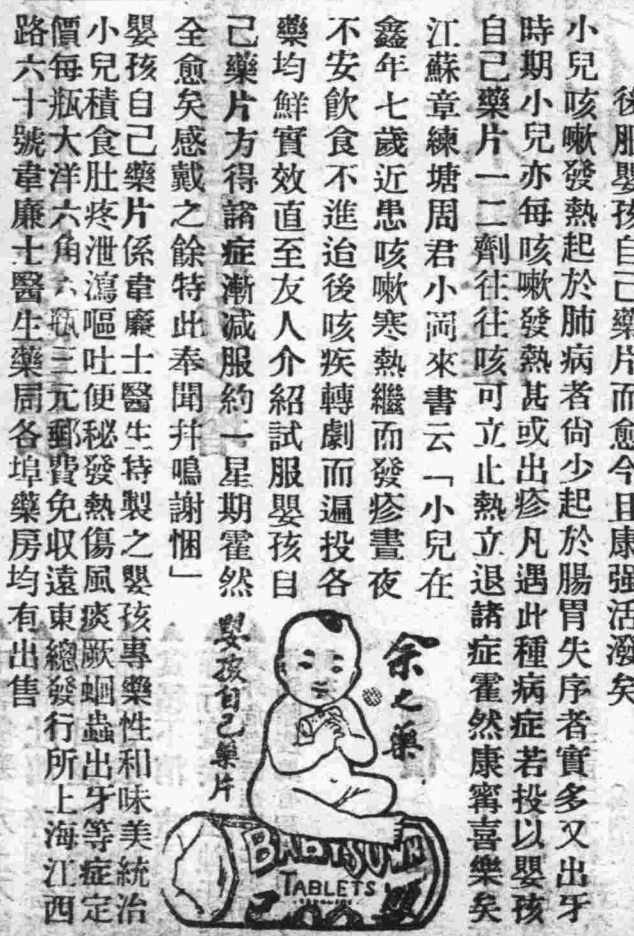 後服嬰孩自己藥片而愈今且康强活潑矣
小兒咳嗽發熱起於肺病者尙少起於腸胃失序者實多又出牙
時期小兒亦每咳嗽發熱甚或出疹凡遇此種病症若投以嬰孩
自己藥片一二劑往往咳可立止熱立退諸症霍然康寗喜樂矣
江蘇章練塘周君小岡來書云「小兒在
鑫年七歲近患咳嗽寒熱繼而發疹晝夜
不安飲食不進迨後咳疾轉劇而遍投各
藥均鮮實效直至友人介紹試服嬰孩自
己藥片方得諸症漸减服約一星期霍然
全愈矣感戴之餘特此奉聞幷鳴謝悃」
嬰孩自己藥片係韋廉士醫生特製之嬰孩專藥性和味美統治
小兒積食肚疼泄瀉嘔吐便秘發熱傷風痰厥蛔蟲出牙等症定
價每瓶大洋六角六瓶三元郵費免收遠東總發行所上海江西
路六十號韋廉士醫生藥局各埠藥房均有出售
余之藥
嬰孩自己藥片
BABY'S OWN
TABLETS
己 嬰